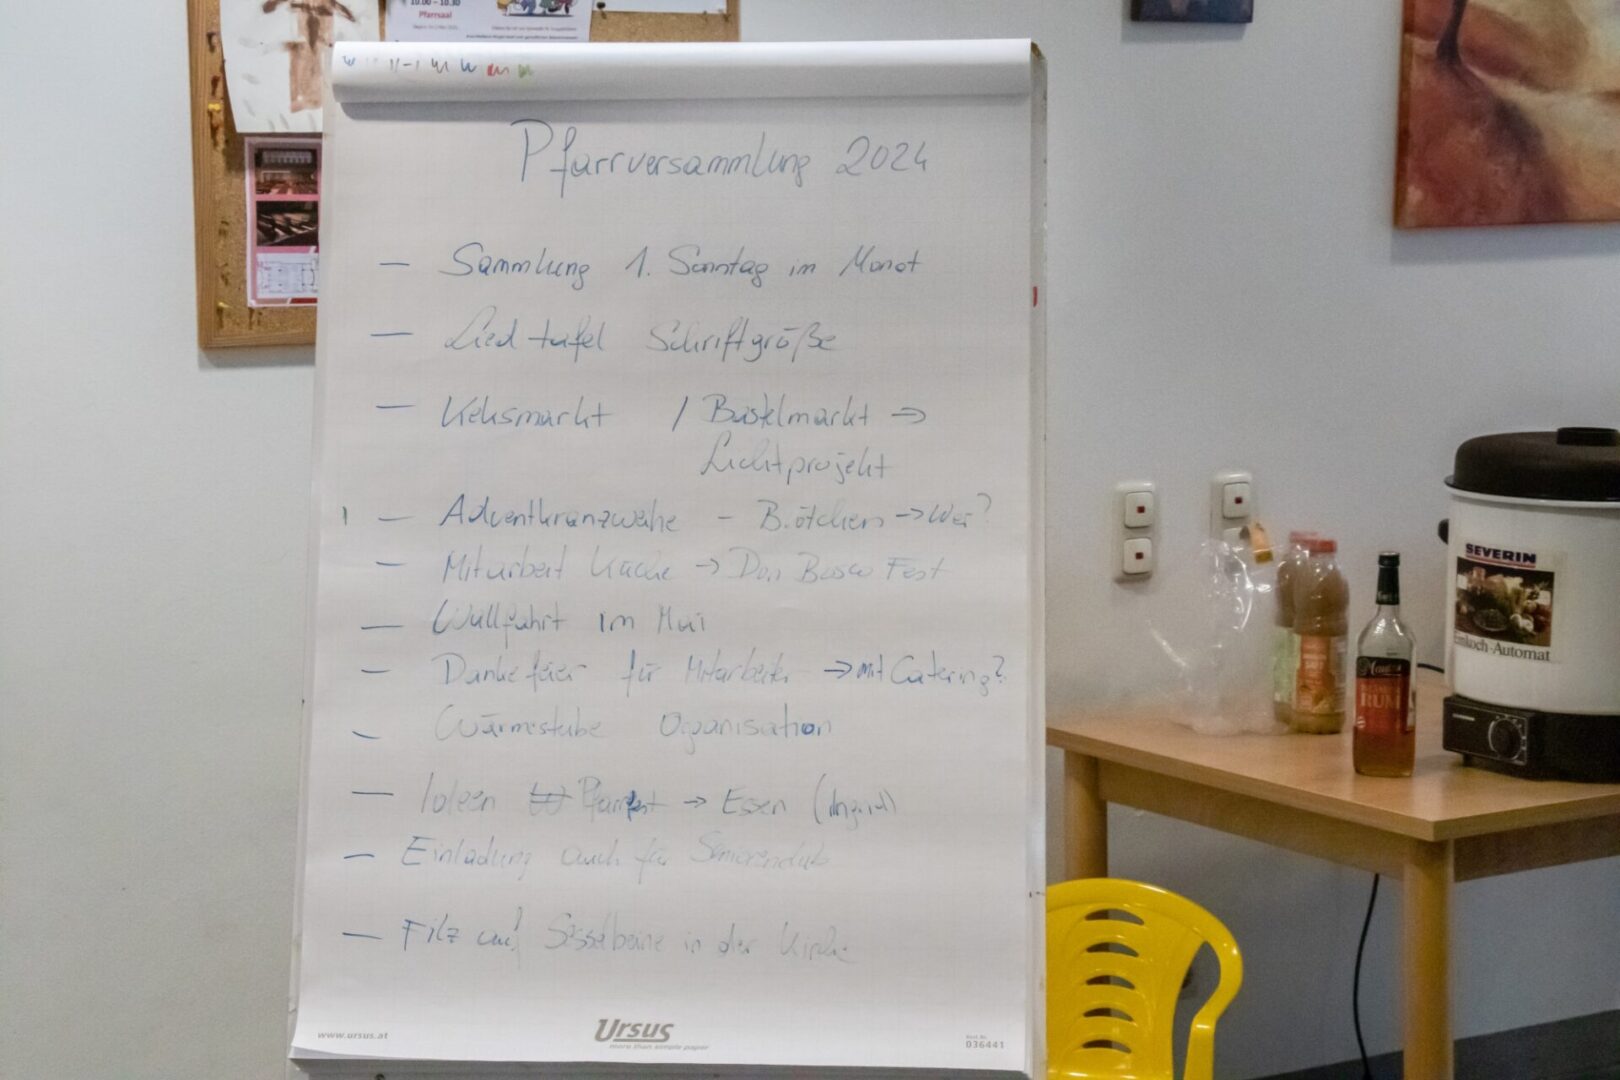 10.00 - 10.30
Pfarrsaal
Pfarrversammlung 2024
— Sammlung 1. Sonntag im Monat
— Liedtafel Schriftgröße
— Keksmarkt / Bastelmarkt →
Lichtprojekt
— Adventkranzweihe - B.ötchen → Wer?
— Mitarbeit Küche → Don Bosco Fest
— Wallfahrt im Mai
— Dankefeier für Mitarbeiter → mit Catering?
— Wärmestube Organisation
— Ideen Pfarrfest → Essen
— Einladung auch für Seniorenclub
— Filz auf Sesselbeine in der Kirche
www.ursus.at
Ursus
more than simple paper
Best.Nr.
036441
SEVERIN
Einkoch-Automat
RUM